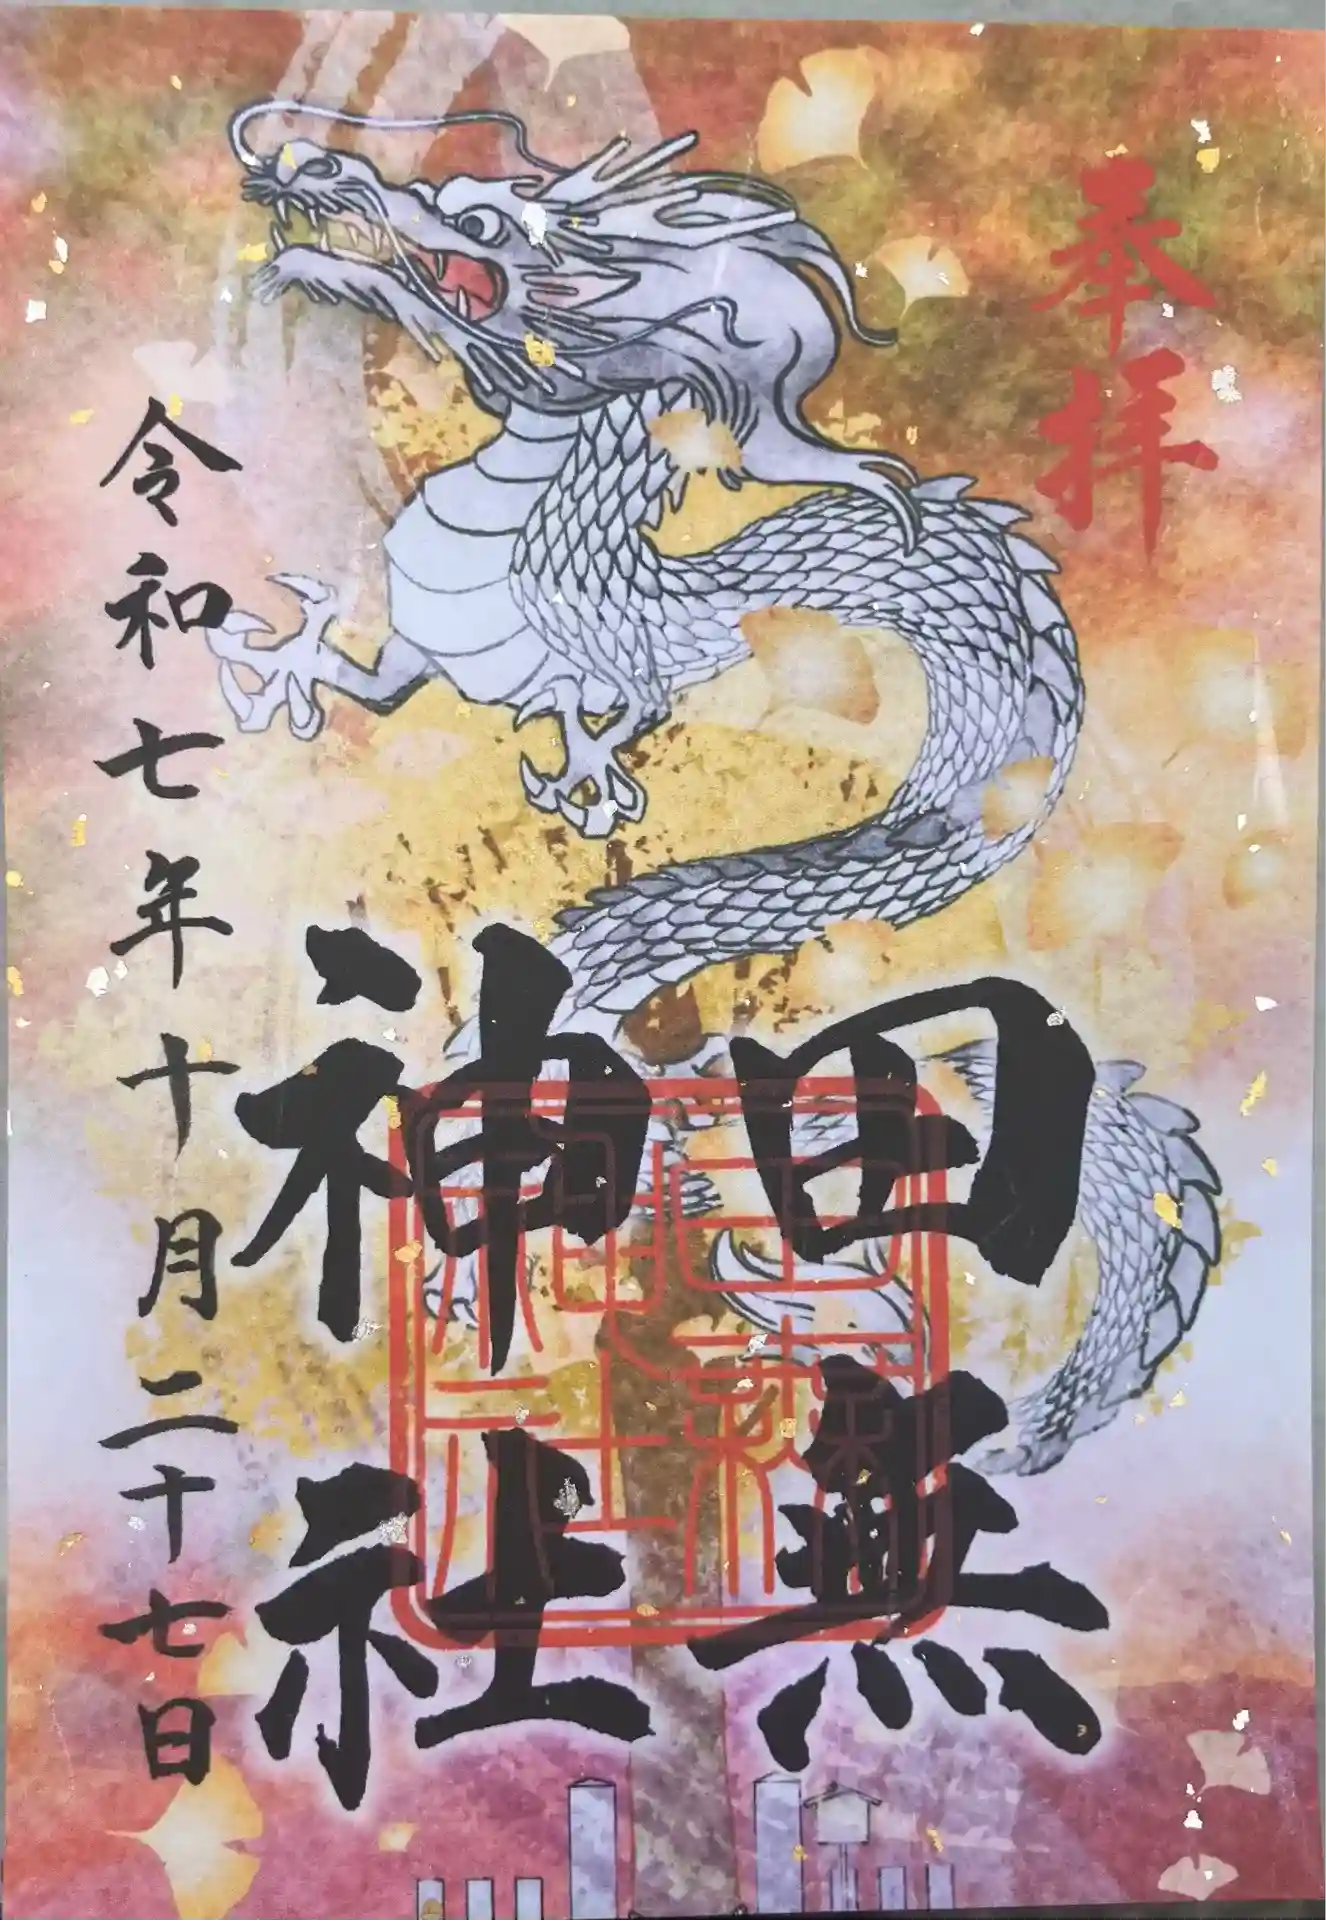 奉拝
田無
神社
令和七年十月二十七日
田無
神社